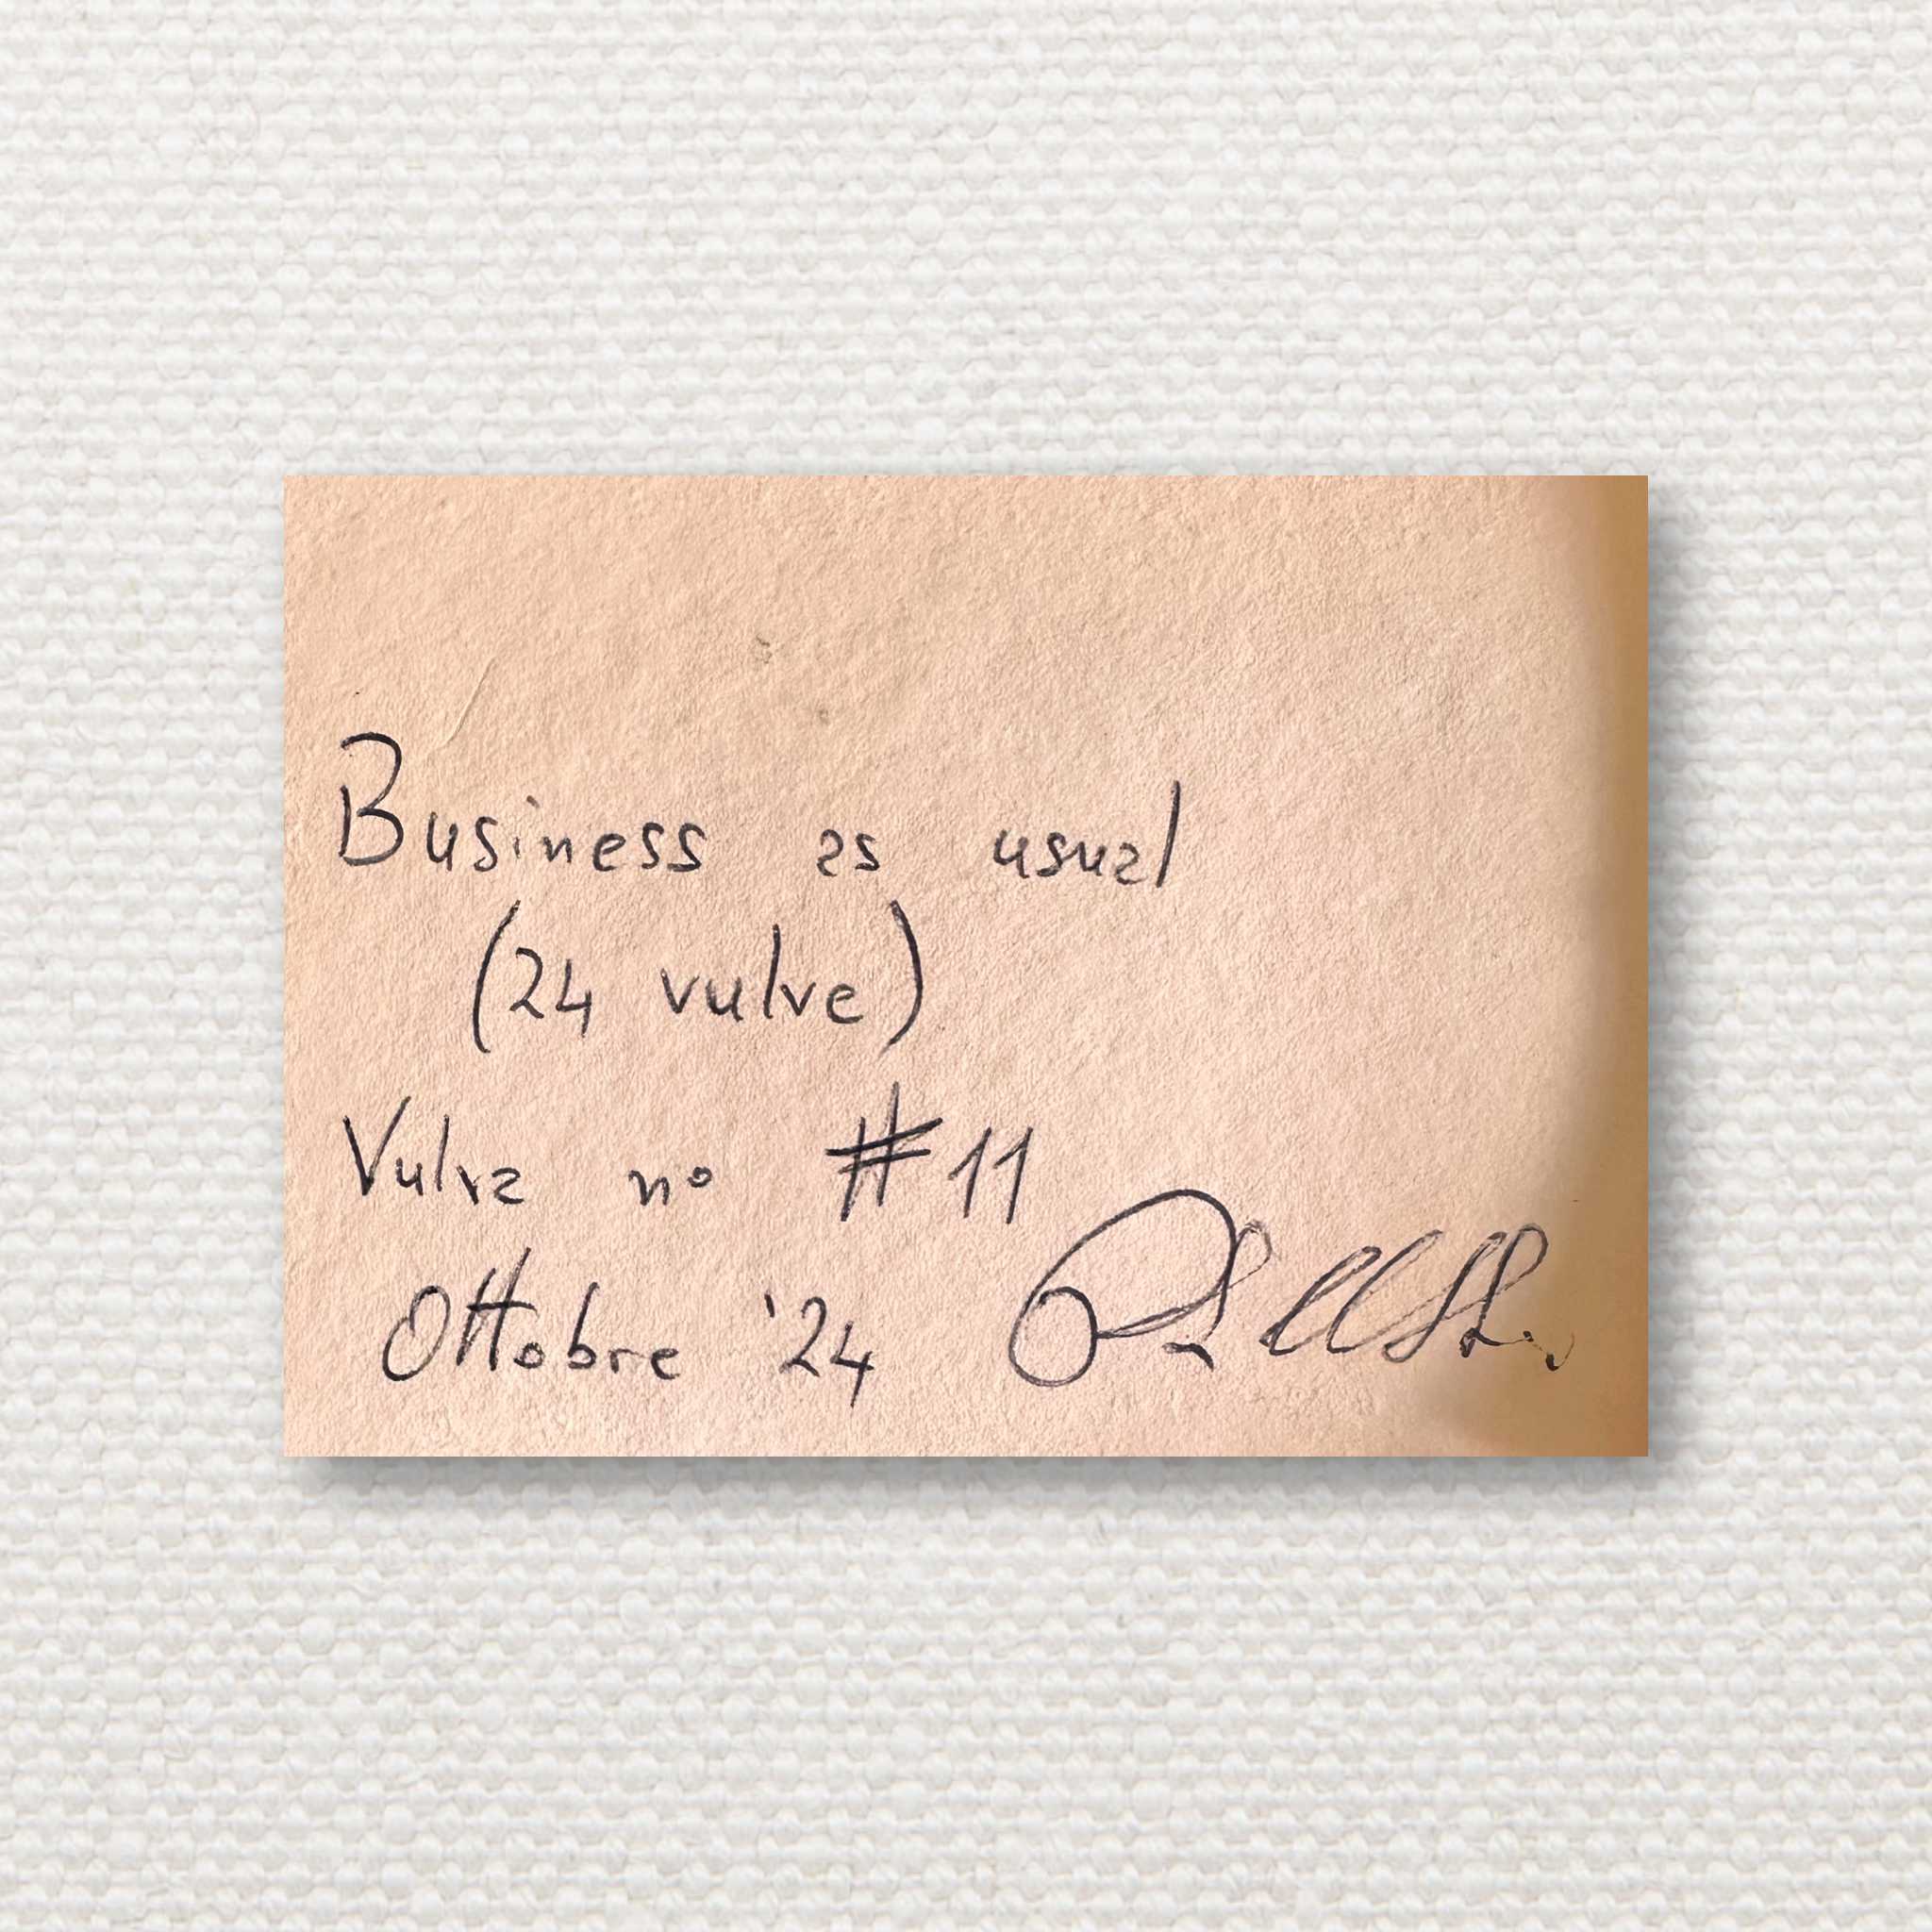 Business as usual
(24 vulve)
Vulva n° #11
Ottobre '24